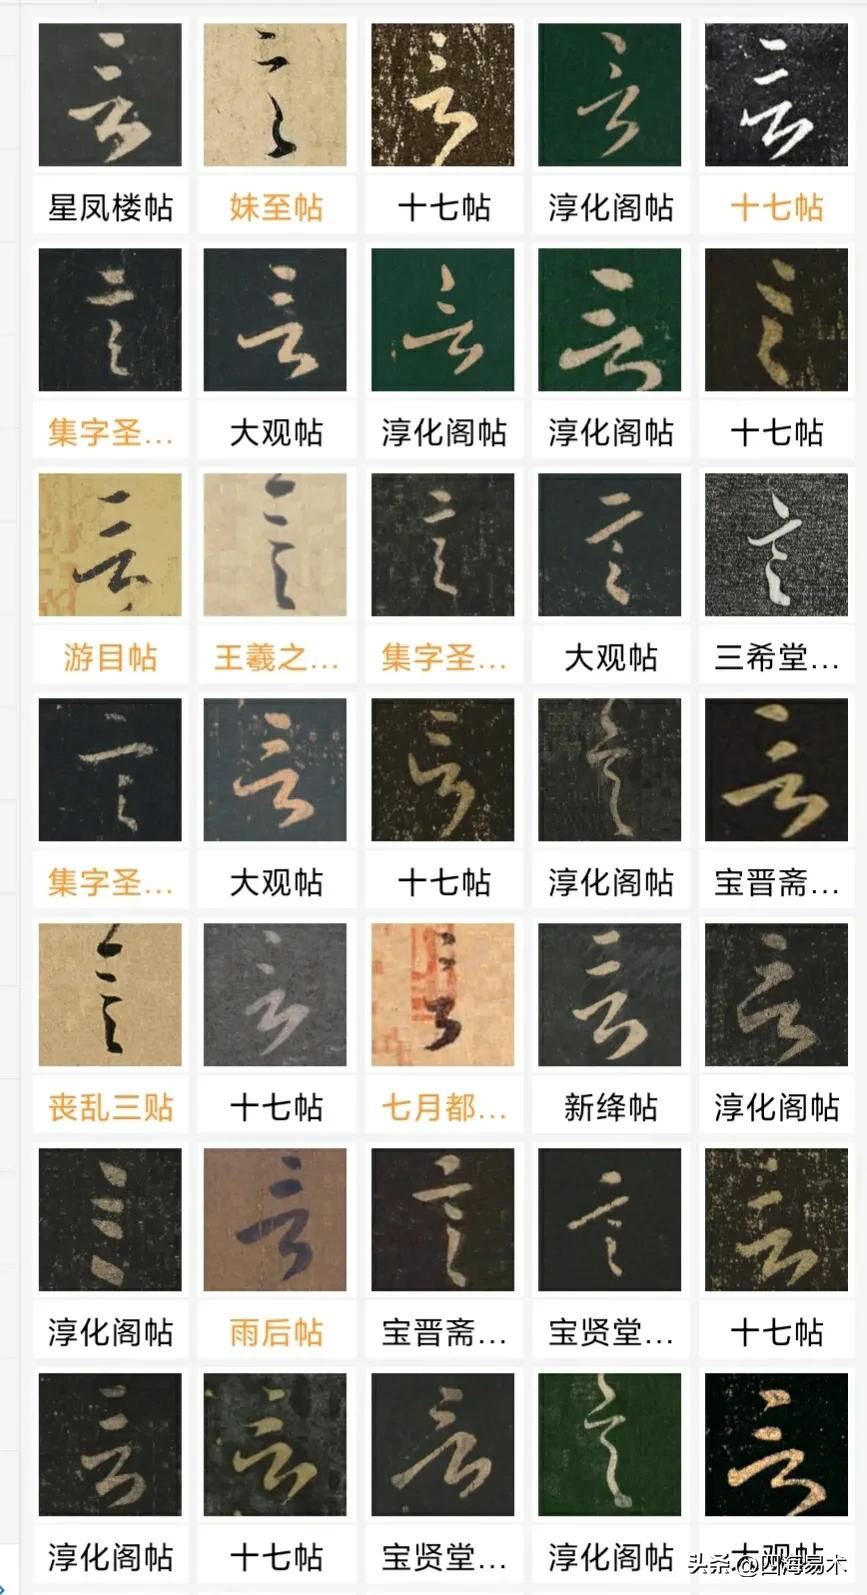 星凤楼帖 妹至帖 十七帖 淳化阁帖 十七帖
集字圣… 大观帖 淳化阁帖 淳化阁帖 十七帖
游目帖 王羲之… 集字圣… 大观帖 三希堂…
集字圣… 大观帖 十七帖 淳化阁帖 宝晋斋…
丧乱三贴 十七帖 七月都… 新绛帖 淳化阁帖
淳化阁帖 雨后帖 宝晋斋… 宝贤堂… 十七帖
淳化阁帖 十七帖 宝贤堂… 淳化阁帖 大观帖
头条 @四海易木